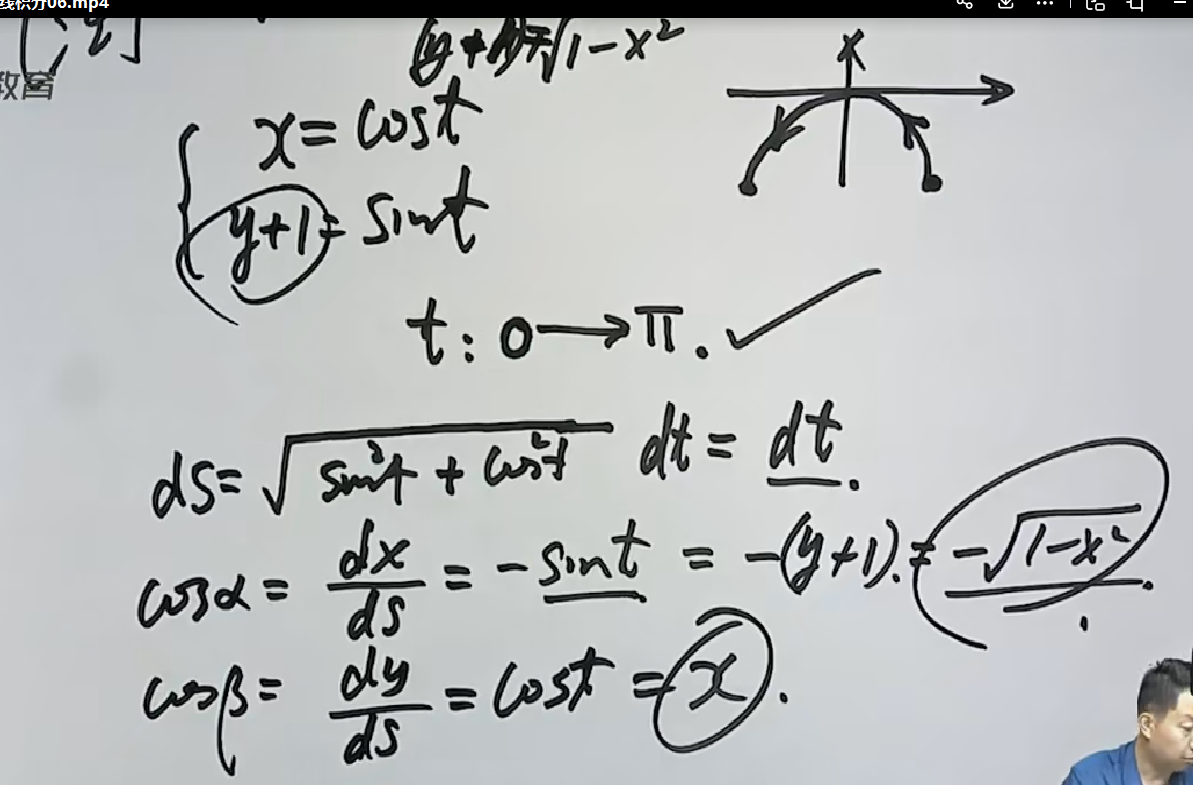 线积分06.mp4
[例]
y+1=√1-x²
教育
x= cost
y+1= sint
t: 0→π.
ds= √sin²t + cos²t dt = dt.
cosα= dx/ds = -sint = -(y+1). = -√1-x².
cosβ= dy/ds = cost = x.